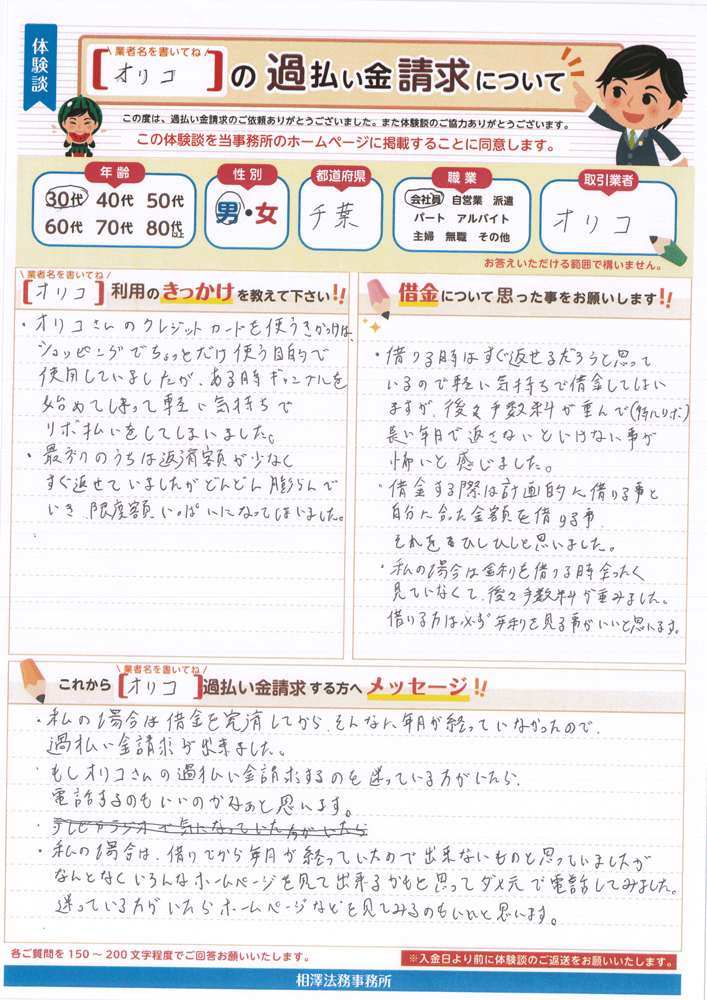 体験談
業者名を書いてね
[オリコ]の過払い金請求について
この度は、過払い金請求のご依頼ありがとうございました。また体験談のご協力ありがとうございます。
この体験談を当事務所のホームページに掲載することに同意します。
年齢
30代 40代 50代
60代 70代 80代以上
性別
男・女
都道府県
千葉
職業
会社員 自営業 派遣
パート アルバイト
主婦 無職 その他
取引業者
オリコ
お答えいただける範囲で構いません。
業者名を書いてね
[オリコ]利用のきっかけを教えて下さい!!
・オリコさんのクレジットカードを使うきっかけは、
ショッピングでちょっとだけ使う目的で
使用していましたが、ある時ギャンブルを
始めてしまって軽い気持ちで
リボ払いをしてしまいました。
・最初のうちは返済額が少なく
すぐ返せていましたがどんどん膨らんで
いき、限度額いっぱいになってしまいました。
借金について思った事をお願いします!!
・借りる時はすぐ返せるだろうと思って
いるので軽い気持ちで借金してしまい
ますが、後々手数料が重んで(特にリボ)
長い年月で返さないといけない事が
怖いと感じました。
・借金する際は計画的に借りる事と
自分に合った金額を借りる事、
それをひしひしと思いました。
・私の場合は金利を借りる時全ったく
見ていなくて、後々手数料が重みました。
借りる方は必ず年利を見る事がいいと思います。
業者名を書いてね
これから[オリコ]過払い金請求する方へメッセージ!!
・私の場合は借金を完済してから、そんなに年月が経っていなかったので、
過払い金請求が出来ました。
・もしオリコさんの過払い金請求するのを迷っている方がいたら、
電話するのもいいのかなぁと思います。
・テレビやラジオで気になっていた方がいたら
・私の場合は、借りてから年月が経っていたので出来ないものと思っていましたが
なんとなくいろんなホームページを見て出来るかもと思ってダメ元で電話してみました。
迷っている方がいたらホームページなどを見てみるのもいいと思います。
各ご質問を150～200文字程度でご回答お願いいたします。
※入金日より前に体験談のご返送をお願いいたします。
相澤法務事務所